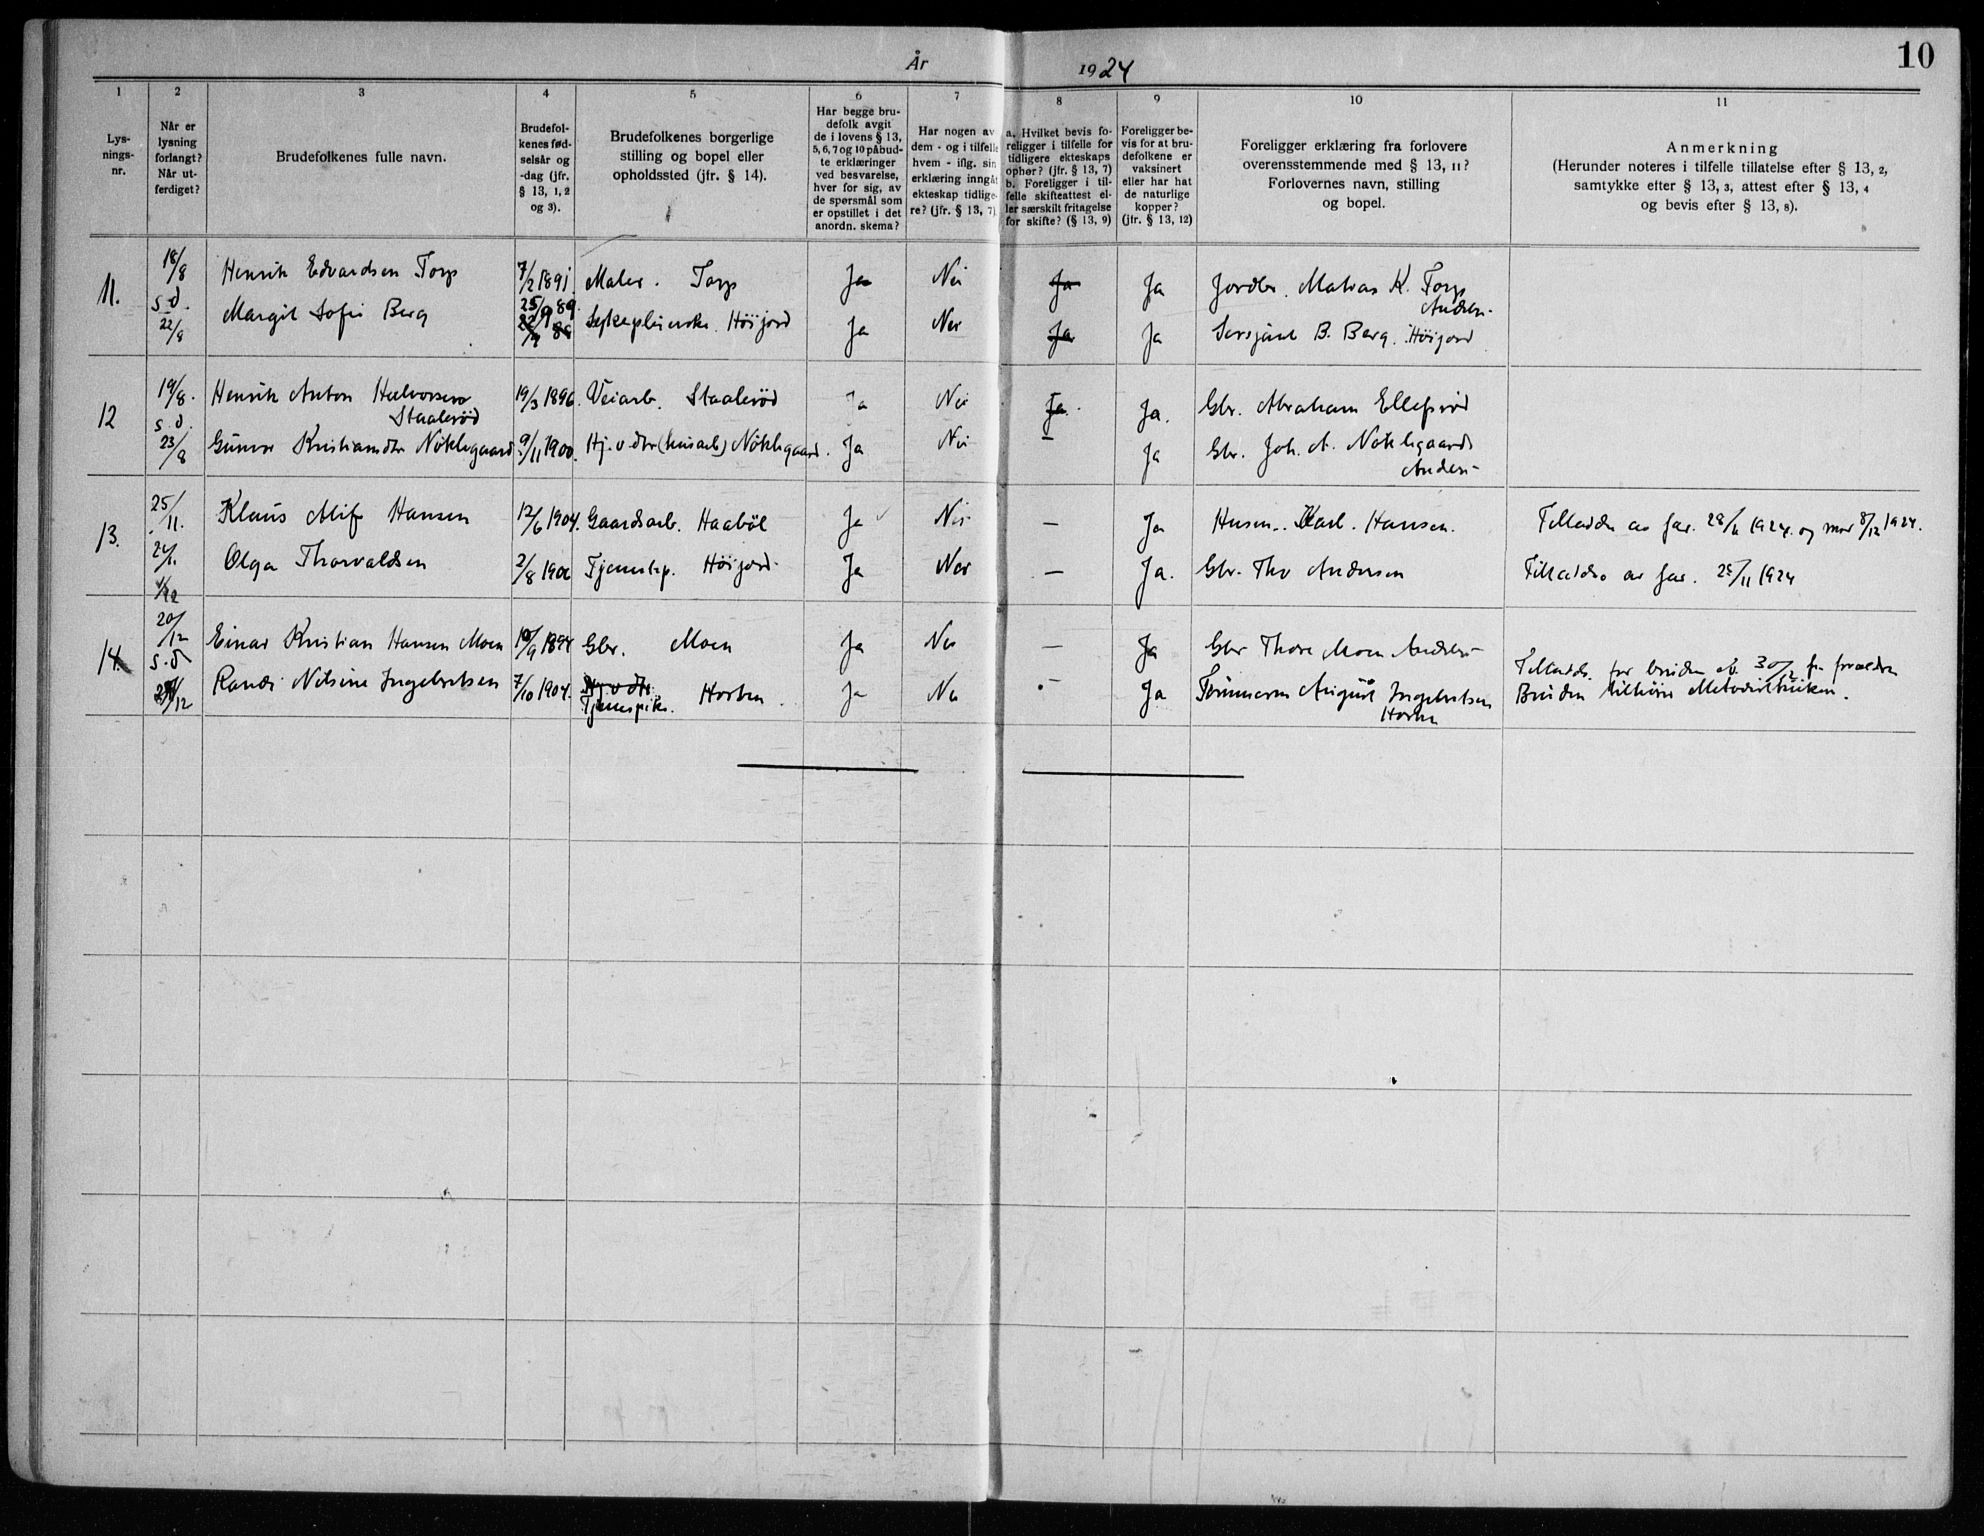 År 1924
10
1
2
3
4
5
6
7
8
9
10
11
Lys-
nings-
nr.
Når er
lysning
forlangt?
Når ut-
ferdiget?
Brudefolkenes fulle navn.
Brudefol-
kenes fød-
selsår og
-dag (jfr.
§ 13, 1, 2
og 3).
Brudefolkenes borgerlige
stilling og bopel eller
opholdssted (jfr. § 14).
Har begge bru-
defolk avgit
de i lovens § 13,
5, 6, 7 og 10 påbud-
te erklæringer
ved besvarelse,
hver for sig, av
de spørsmål som
er opstillet i det
anordn. skema?
Har nogen av
dem - og i tilfelle
hvem - iflg. sin
erklæring inngåt
ekteskap tidlige-
re? (jfr. § 13, 7)
a. Hvilket bevis fo-
religger i tilfelle for
tidligere ekteskaps
ophør? (jfr. § 13, 7)
b. Foreligger i til-
felle skifteattest el-
ler særskilt fritagelse
for skifte? (§ 13, 9)
Foreligger be-
vis for at bru-
defolkene er
vaksinert
eller har hat
de naturlige
kopper?
(jfr. § 13, 12)
Foreligger erklæring fra forlovere
overensstemmende med § 13, 11?
Forlovernes navn, stilling
og bopel.
Anmerkning
(Herunder noteres i tilfelle tillatelse efter § 13, 2,
samtykke efter § 13, 3, attest efter § 13, 4
og bevis efter § 13, 8).
11.
18/8
s.d.
22/8
Henrik Edvardsen Torp 7/2 1891 Maler. Torp Ja Nei Ja Ja Jordbr. Matias K. Torp
Andebu
Margit Sofie Berg 25/9 89 Sykepleierske. Höijord Ja Nei Ja Ja Sersjant B. Berg. Höijord
12
19/8.
s.d.
23/8
Henrik Anton Halvorsen 19/3 1896. Veiarb. Staaleröd Ja Nei Ja. Ja. Gbr. Abraham Ellefsröd
Staaleröd
Gunvor Kristiansdtr Nöklegaard 9/11 1900. Hj.v.dtr (husarb) Nöklegaard. Ja Nei – Ja Gbr. Joh. A. Nöklegaard
Andebu
13.
25/11.
4/12
Klaus Alif Hansen 12/6 1904. Gaardsarb. Haaböl Ja Nei – Ja Husm. Karl. Hansen. Tilladelse av far. 28/11 1924. og mor 8/12 1924.
Olga Thorvaldsen 2/8 1906 Tjenestep. Höijord. Ja Nei – Ja. Gbr. Thv Andersen Tilladelse av far. 25/11 1924
14.
20/12
s.d.
Einar Kristian Hansen Moen 10/9 1894 Gbr. Moen Ja Nei – Ja Gbr Thore Moen Andebu
Randi Nilsine Ingebretsen 7/10 1904. Hj.v.dtr. Horten Ja Nei – Ja Tömmerm August Ingebretsen
Tjenespike.
Horten
Tilladels. for bruden av 30/12 fra forældre
Bruden tilhører Metodistkirken.